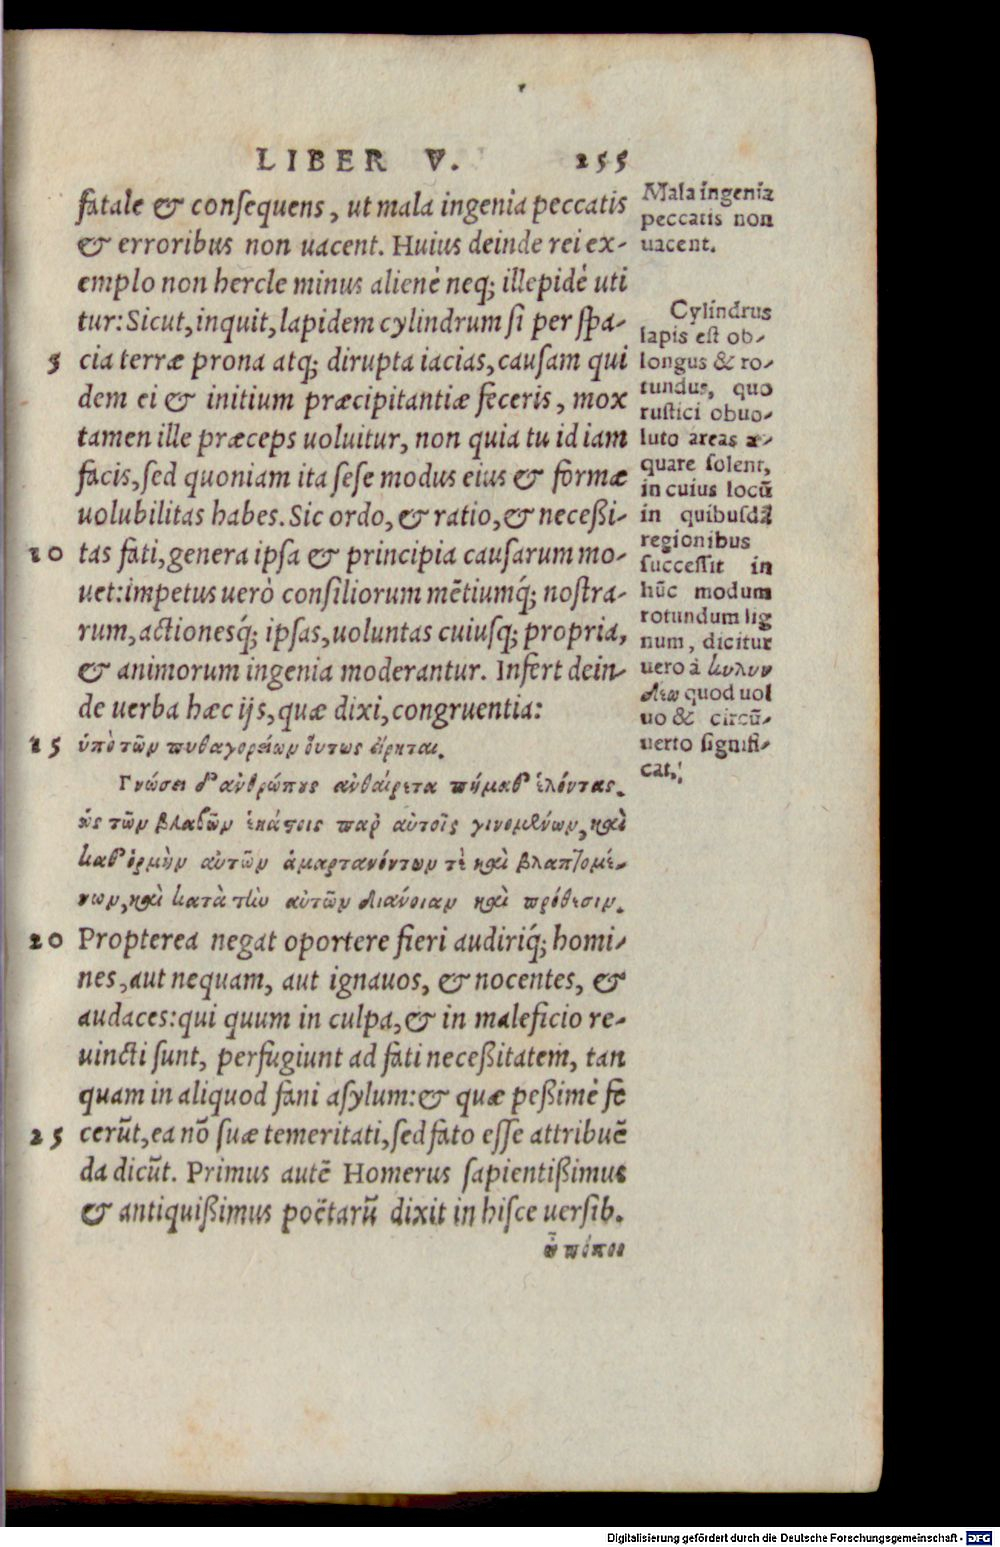 LIBER V. 255
fatale & consequens, ut mala ingenia peccatis
& erroribus non uacent. Huius deinde rei ex-
emplo non hercle minus alienè neq; illepidè uti
tur: Sicut, inquit, lapidem cylindrum si per spa-
5 cia terræ prona atq; dirupta iacias, causam qui
dem ei & initium præcipitantiæ feceris, mox
tamen ille præceps uoluitur, non quia tu id iam
facis, sed quoniam ita sese modus eius & formæ
uolubilitas habes. Sic ordo, & ratio, & neceßi-
10 tas fati, genera ipsa & principia causarum mo-
uet: impetus uerò consiliorum mētiumq́; nostra-
rum, actionesq́; ipsas, uoluntas cuiusq; propria,
& animorum ingenia moderantur. Infert dein-
de uerba hæc ijs, quæ dixi, congruentia:
15 ὑπὸ τῶν πυθαγορείων οὕτως εἴρηται.
Γνώσει δ' ἀνθρώπους αὐθαίρετα πήμαθ' ἑλόντας.
ὡς τῶν βλαβῶν ἑκάστοις παρ' αὐτοῖς γινομένων, καὶ
καθ' ὁρμὴν αὐτῶν ἁμαρτανόντων τὲ καὶ βλαπτομέ-
νων, καὶ κατὰ τὴν αὐτῶν διάνοιαν καὶ πρόθεσιν.
20 Propterea negat oportere fieri audiriq́; homi-
nes, aut nequam, aut ignauos, & nocentes, &
audaces: qui quum in culpa, & in maleficio re-
uincti sunt, perfugiunt ad fati neceßitatem, tan
quam in aliquod fani asylum: & quæ peßimè fe
25 cerūt, ea nō suæ temeritati, sed fato esse attribuē
da dicūt. Primus autē Homerus sapientißimus
& antiquißimus poëtarū dixit in hisce uersib.
ὢ πόποι
Mala ingenia
peccatis non
uacent.
Cylindrus
lapis est ob-
longus & ro-
tundus, quo
rustici obuo-
luto areas æ-
quare solent,
in cuius locū
in quibusdā
regionibus
successit in
hūc modum
rotundum lig
num, dicitur
uero à κυλυν
δεω quod uol
uo & circū-
uerto signifi-
cat.
Digitalisierung gefördert durch die Deutsche Forschungsgemeinschaft - DFG